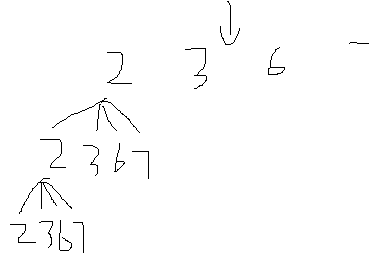 2 3 6
2 3 6 7
2 3 6 7